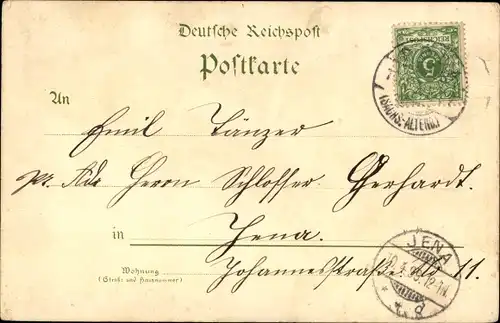 Deutsche Reichspost
Postkarte
REICHSPOST
5
(SACHS.-ALTENB.)
An
Emil Tänzer
pr. Adr. Herrn Schlosser Gerhardt.
in Jena.
JENA
Wohnung
(Straße und Hausnummer)
Johannesstraße 11.